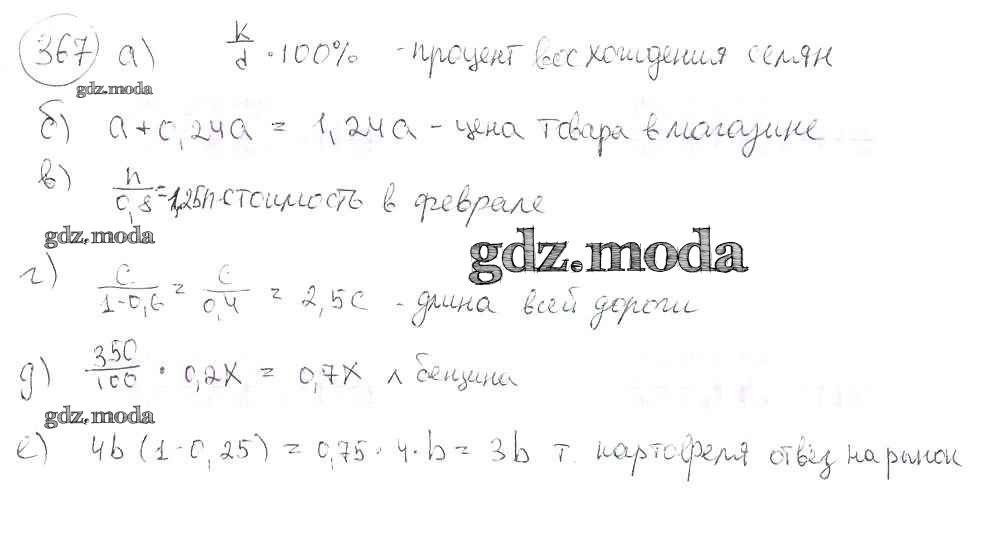 367 а) k/d · 100% - процент восхождения семян
gdz.moda
б) a + 0,24a = 1,24a - цена товара в магазине
в) n/0,8 = 1,25n - стоимость в феврале
gdz.moda
gdz.moda
г) c/1-0,6 = c/0,4 = 2,5c - длина всей дороги
д) 350/100 · 0,2x = 0,7x л бензина
gdz.moda
е) 4b (1-0,25) = 0,75 · 4 · b = 3b т. картофеля отвёз на рынок